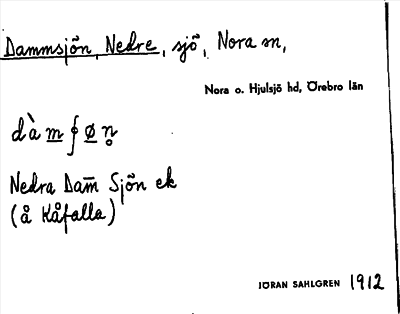 Dammsjön, Nedre, sjö, Nora sn,
Nora o. Hjulsjö hd, Örebro län
dàm̲ʄø̲n̥
Nedra Dam̄ Sjön ek
(å Kåfalla)
JÖRAN SAHLGREN 1912